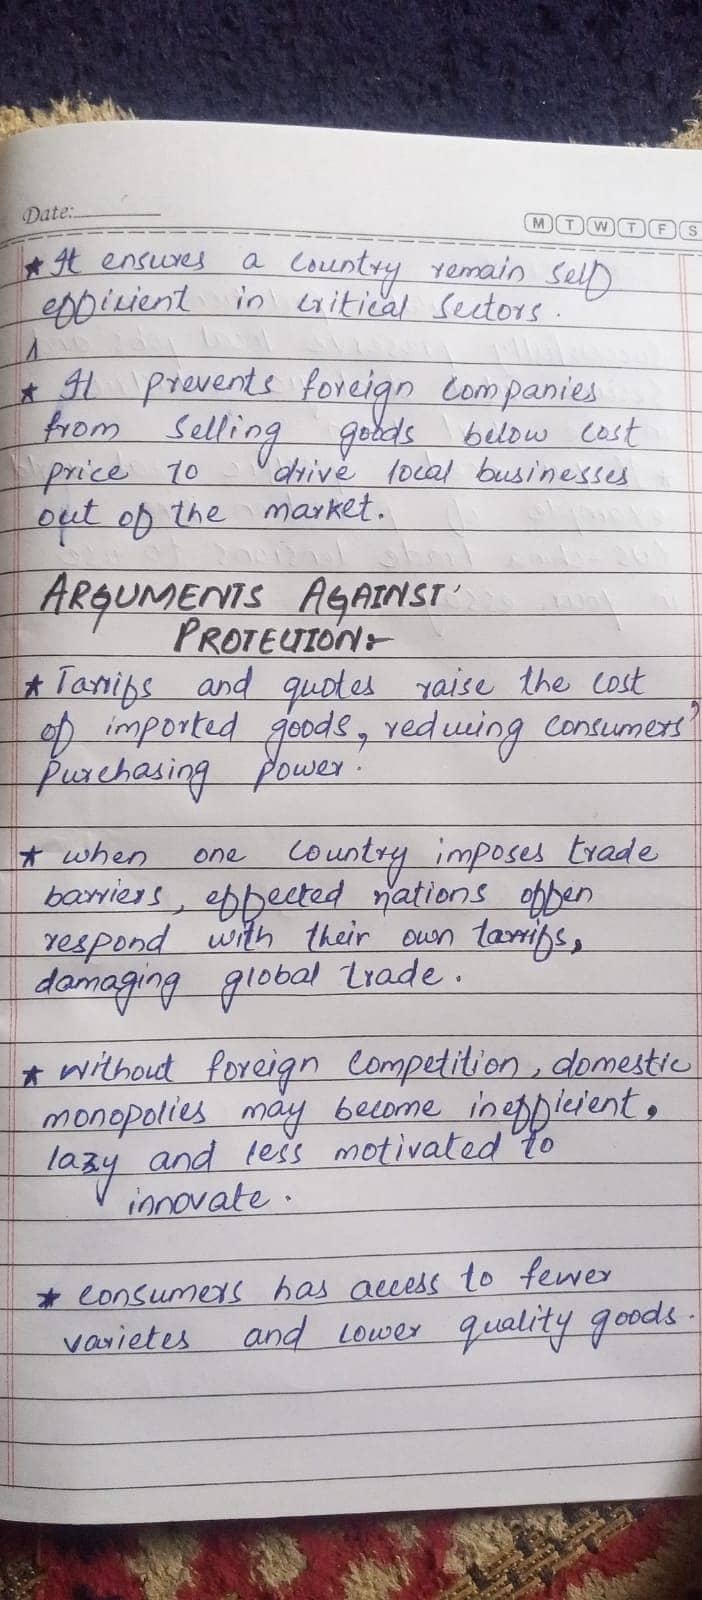 Date:
M T W T F S
★ It ensures a country remain self
efficient in critical sectors.
★ It prevents foreign companies
from selling goods below cost
price to drive local businesses
out of the market.
ARGUMENTS AGAINST
PROTECTION:-
★ Tarrifs and quotes raise the cost
of imported goods, reducing consumers'
purchasing power.
★ when one country imposes trade
barriers, effected nations often
respond with their own tarrifs,
damaging global trade.
★ without foreign competition, domestic
monopolies may become inefficient,
lazy and less motivated to
innovate.
★ consumers has access to fewer
varietes and lower quality goods.